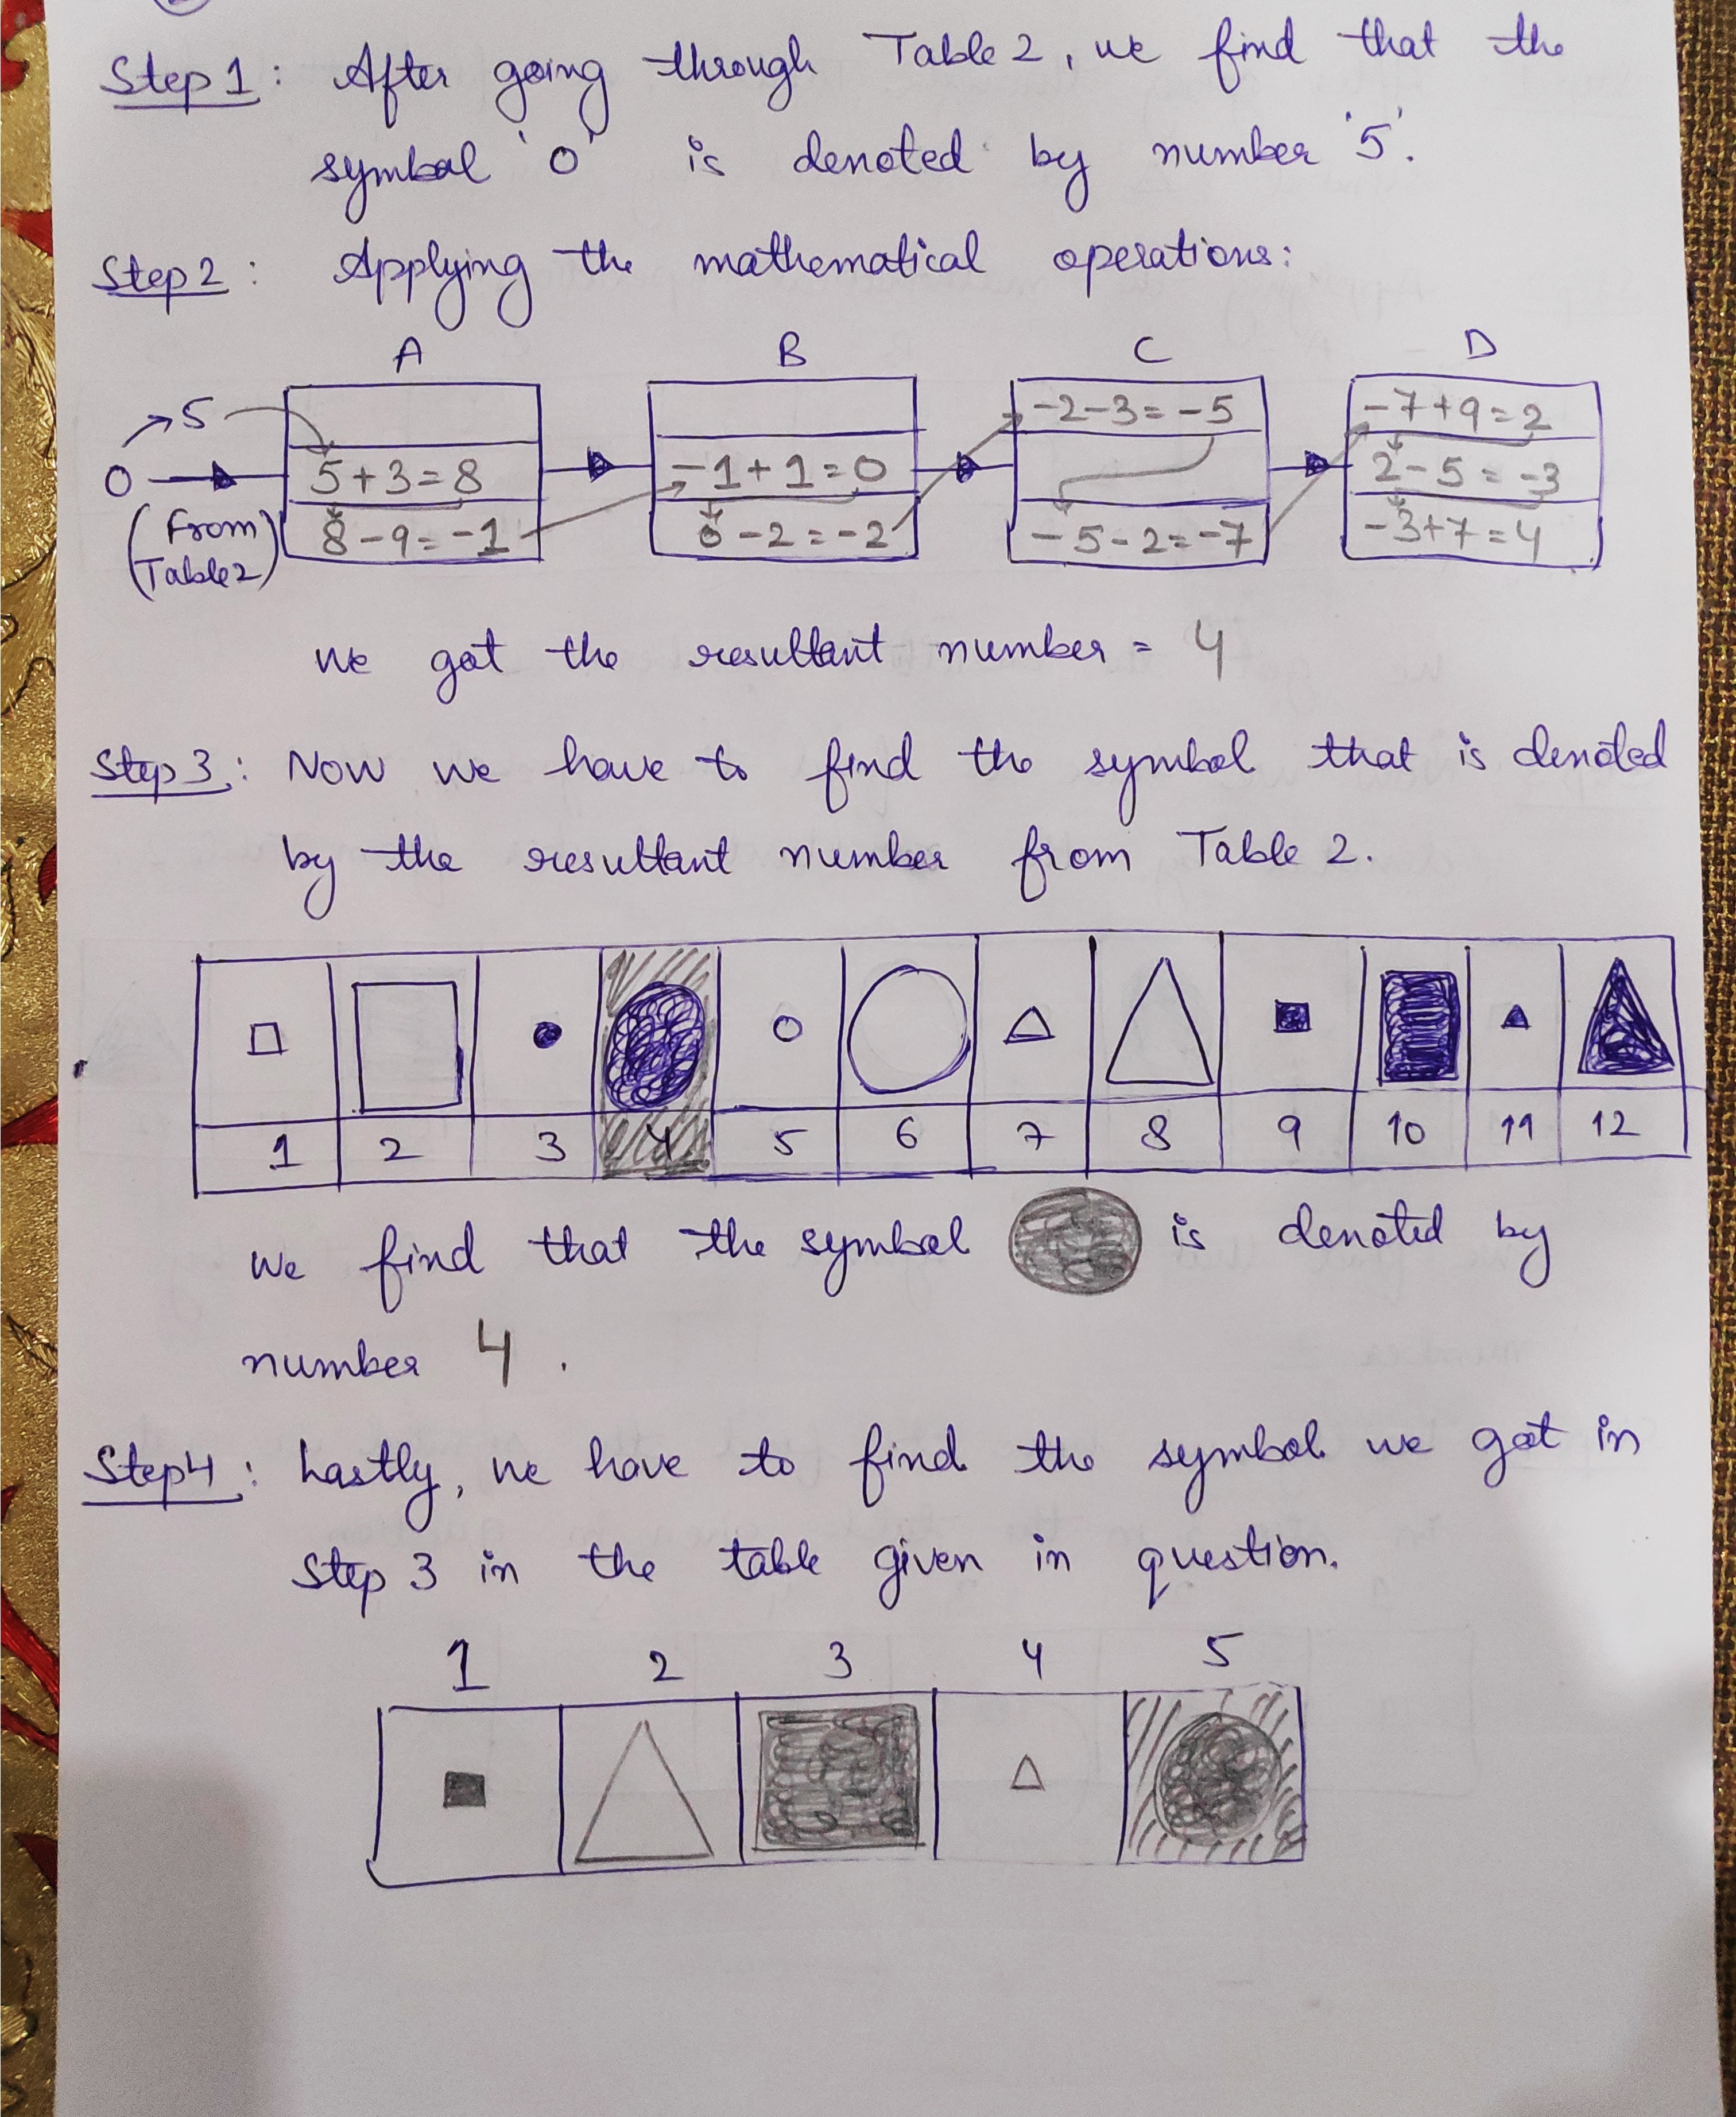 Step 1: After going through Table 2, we find that the
symbol 'O' is denoted by number '5'.
Step 2: Applying the mathematical operations:
A B C D
5
O
(From Table 2)
5+3=8
8-9=-1
-1+1=0
0-2=-2
-2-3=-5
-5-2=-7
-7+9=2
2-5=-3
-3+7=4
we got the resultant number = 4
Step 3: Now we have to find the symbol that is denoted
by the resultant number from Table 2.
1 2 3 4 5 6 7 8 9 10 11 12
we find that the symbol is denoted by
number 4.
Step 4: Lastly, we have to find the symbol we got in
Step 3 in the table given in question.
1 2 3 4 5